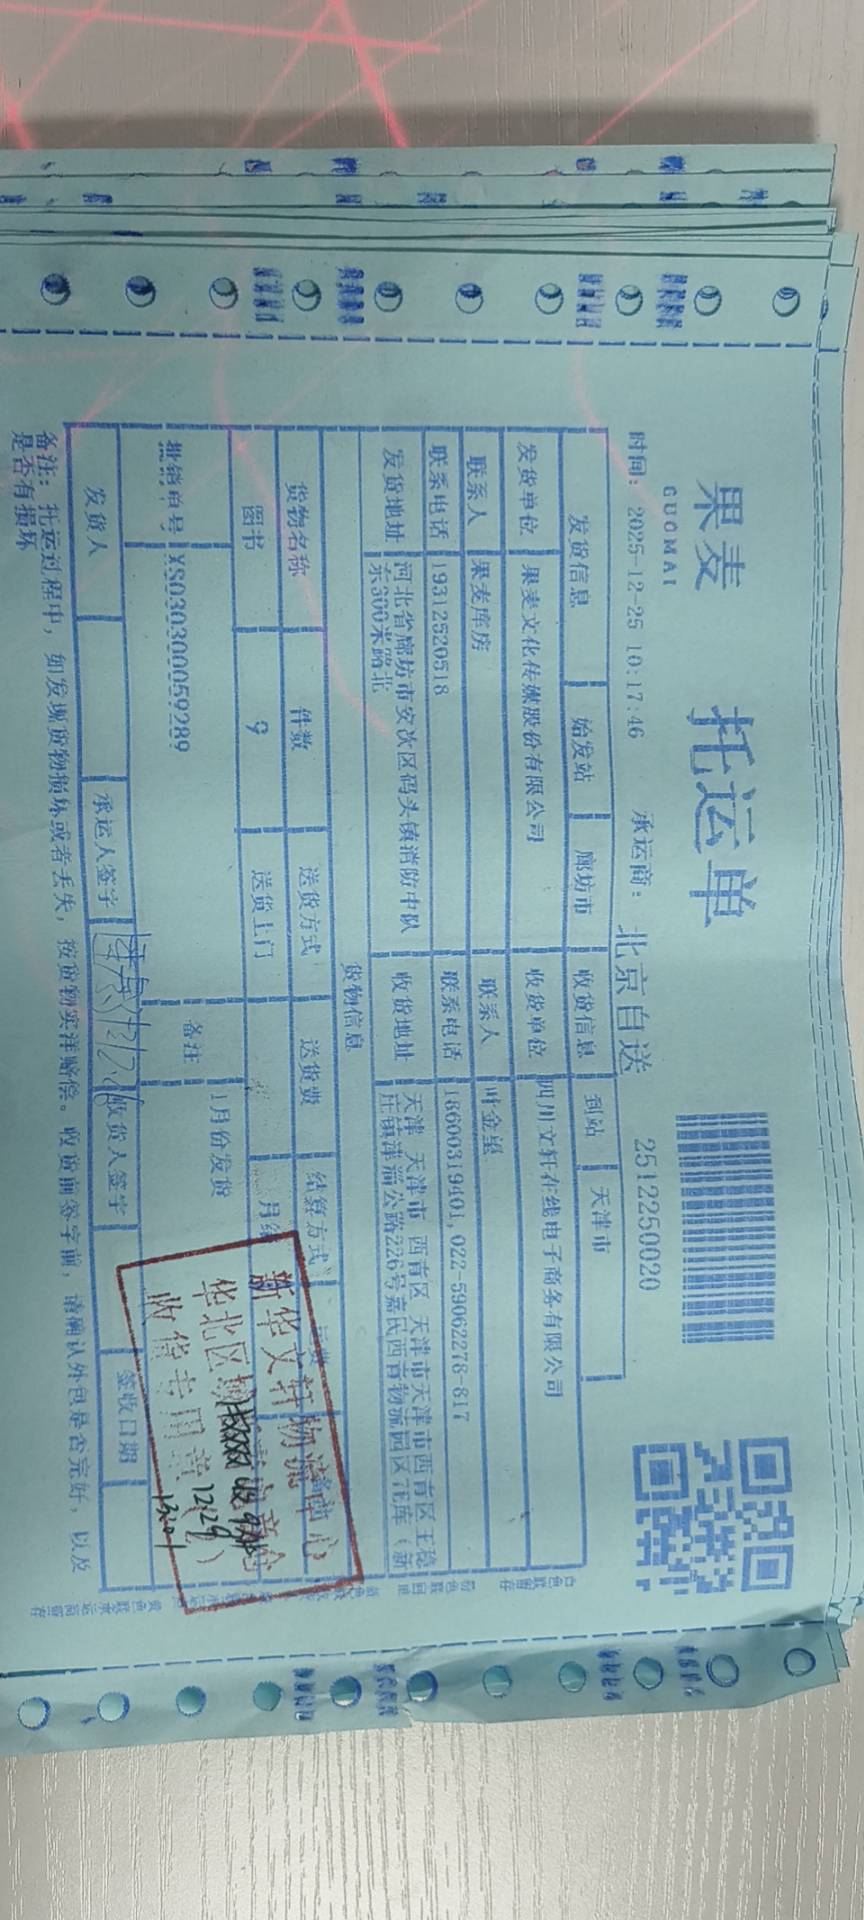 果麦 托运单
GUOMAI
时间: 2025-12-25 10:17:46 承运商: 北京自送 2512250020
发货信息 始发站 廊坊市 收货信息 到站 天津市
发货单位 果麦文化传媒股份有限公司 收货单位 四川文轩在线电子商务有限公司
联系人 果麦库房 联系人 叶金星
联系电话 19312520518 联系电话 18600319401,022-59062278-817
发货地址 河北省廊坊市安次区码头镇消防中队 收货地址 天津 天津市 西青区 天津市天津市西青区王稳
东300米路北 庄镇津淄公路226号嘉民西青物流园区7E库(新
货物信息
货物名称 件数 送货方式 送货费 结算方式
图书 9 送货上门 月结
批销单号 XS030300059289 备注 1月份发货
发货人 承运人签字 收货人签字 签收日期
备注: 托运过程中, 如发现货物损坏或者丢失, 按货物实洋赔偿。收货前签字前, 请确认外包是否完好, 以及
是否有损坏
新华文轩物流中心
华北区
收货专用章
12.29